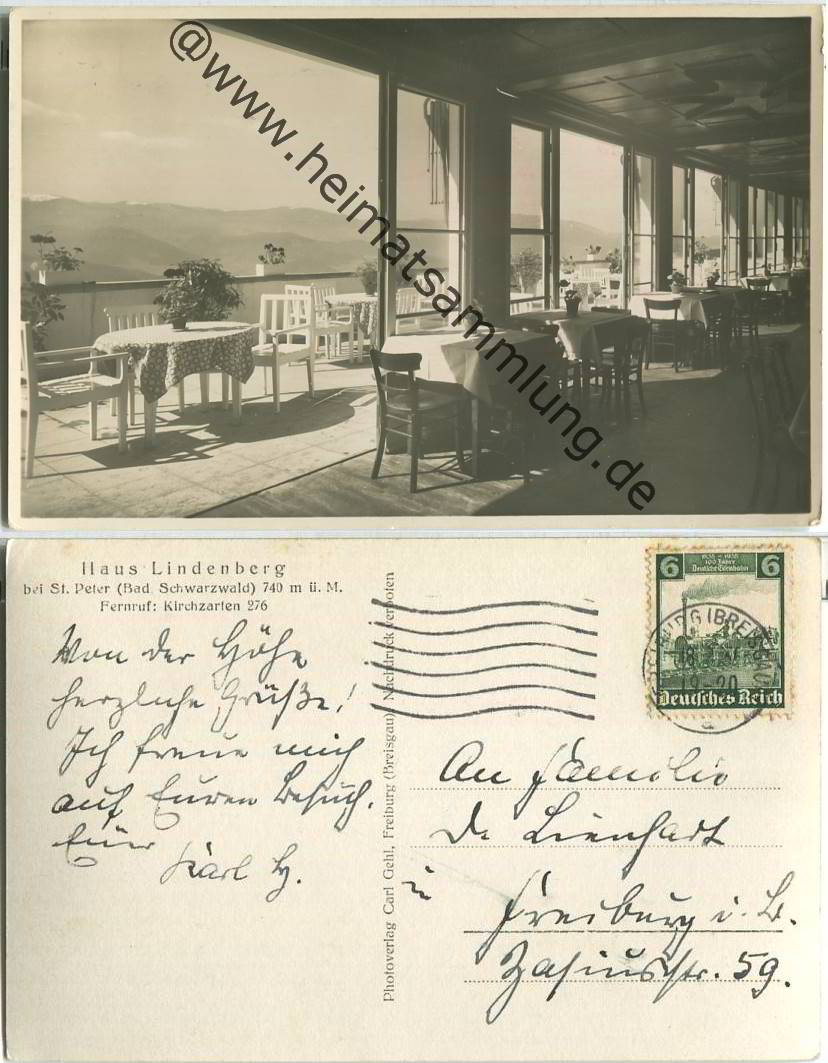 @www.heimatsammlung.de
Haus Lindenberg
bei St. Peter (Bad. Schwarzwald) 740 m ü. M.
Fernruf: Kirchzarten 276
Von der Höhe
herzliche Grüße!
Ich freue mich
auf Euren Besuch.
Euer
Karl H.
Photoverlag Carl Gehl, Freiburg (Breisgau) Nachdruck verboten
6 1835-1935 6
100 Jahre
Deutsche Eisenbahn
Deutsches Reich
(BREISGAU)
19-20
a
An Familie
Dr. Lienhart
in
Freiburg i. B.
Zasiusstr. 59.